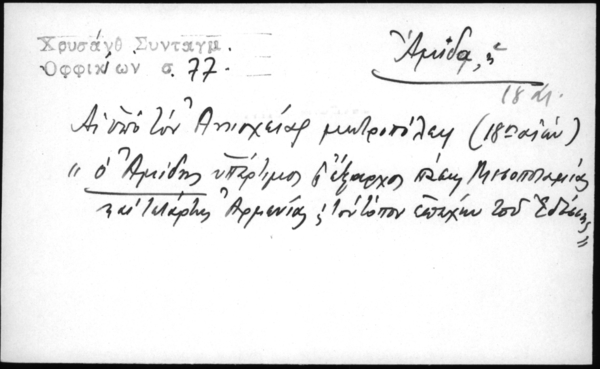 Χρυσάνθ Συνταγμ.
Οφφικίων σ. 77.
Ἄμιδα, ἡ
18 αι.
Αἱ ὑπὸ τὸν Ἀντιοχείας μητροπόλεις (18ος αἰών)
" ὁ Ἀμίδης ὑπέρτιμος ἔξαρχος πάσης Μεσοποταμίας
καὶ τετάρτης Ἀρμενίας, τὸν τόπον ἐπέχων τοῦ Ἐδέσσης"